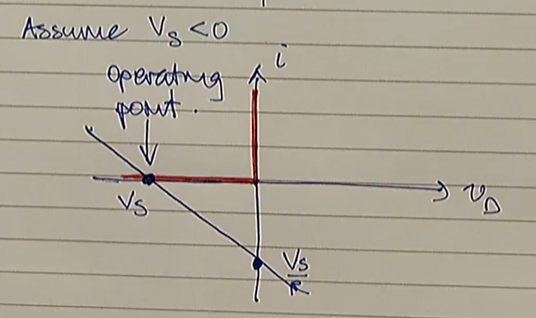 Assume V_S < 0
i
operating
point.
v_D
V_S
V_S/R